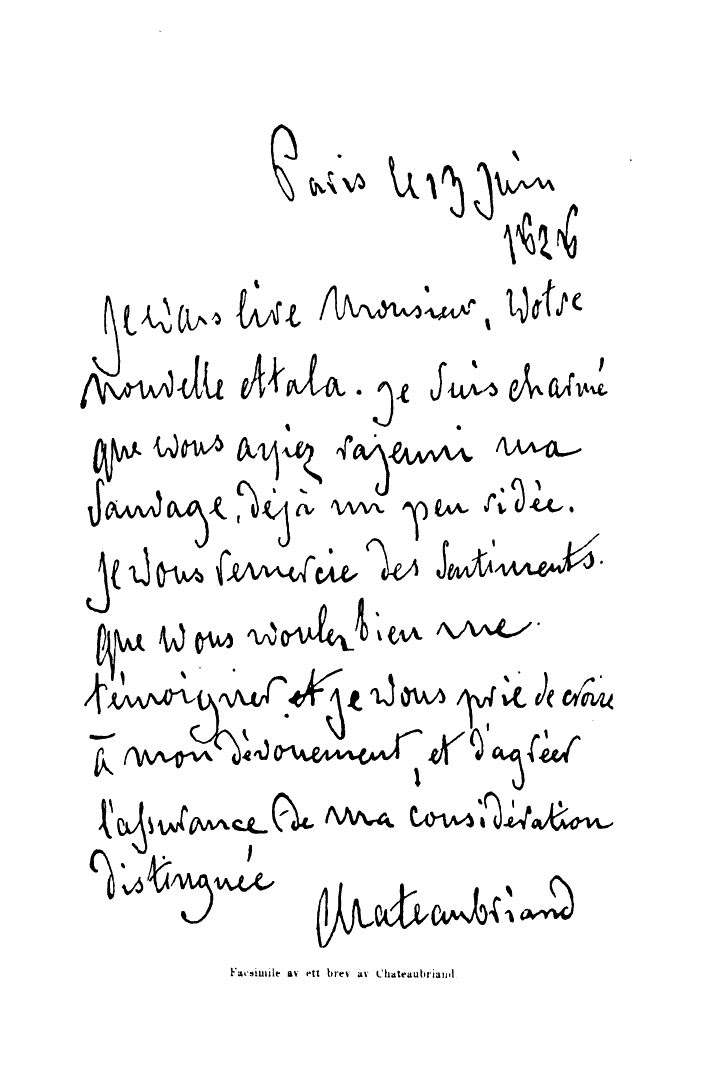 Paris le 13 Juin
1826
Je vais lire Monsieur, Votre
nouvelle Atala. je suis charmé
que vous ayiez rajeuni ma
Sauvage, déjà un peu ridée.
Je vous remercie des sentiments
que vous voulez bien me
témoigner et je vous prie de croire
à mon dévouement, et d'agréer
l'assurance de ma considération
distinguée
Chateaubriand
Facsimile av ett brev av Chateaubriand.